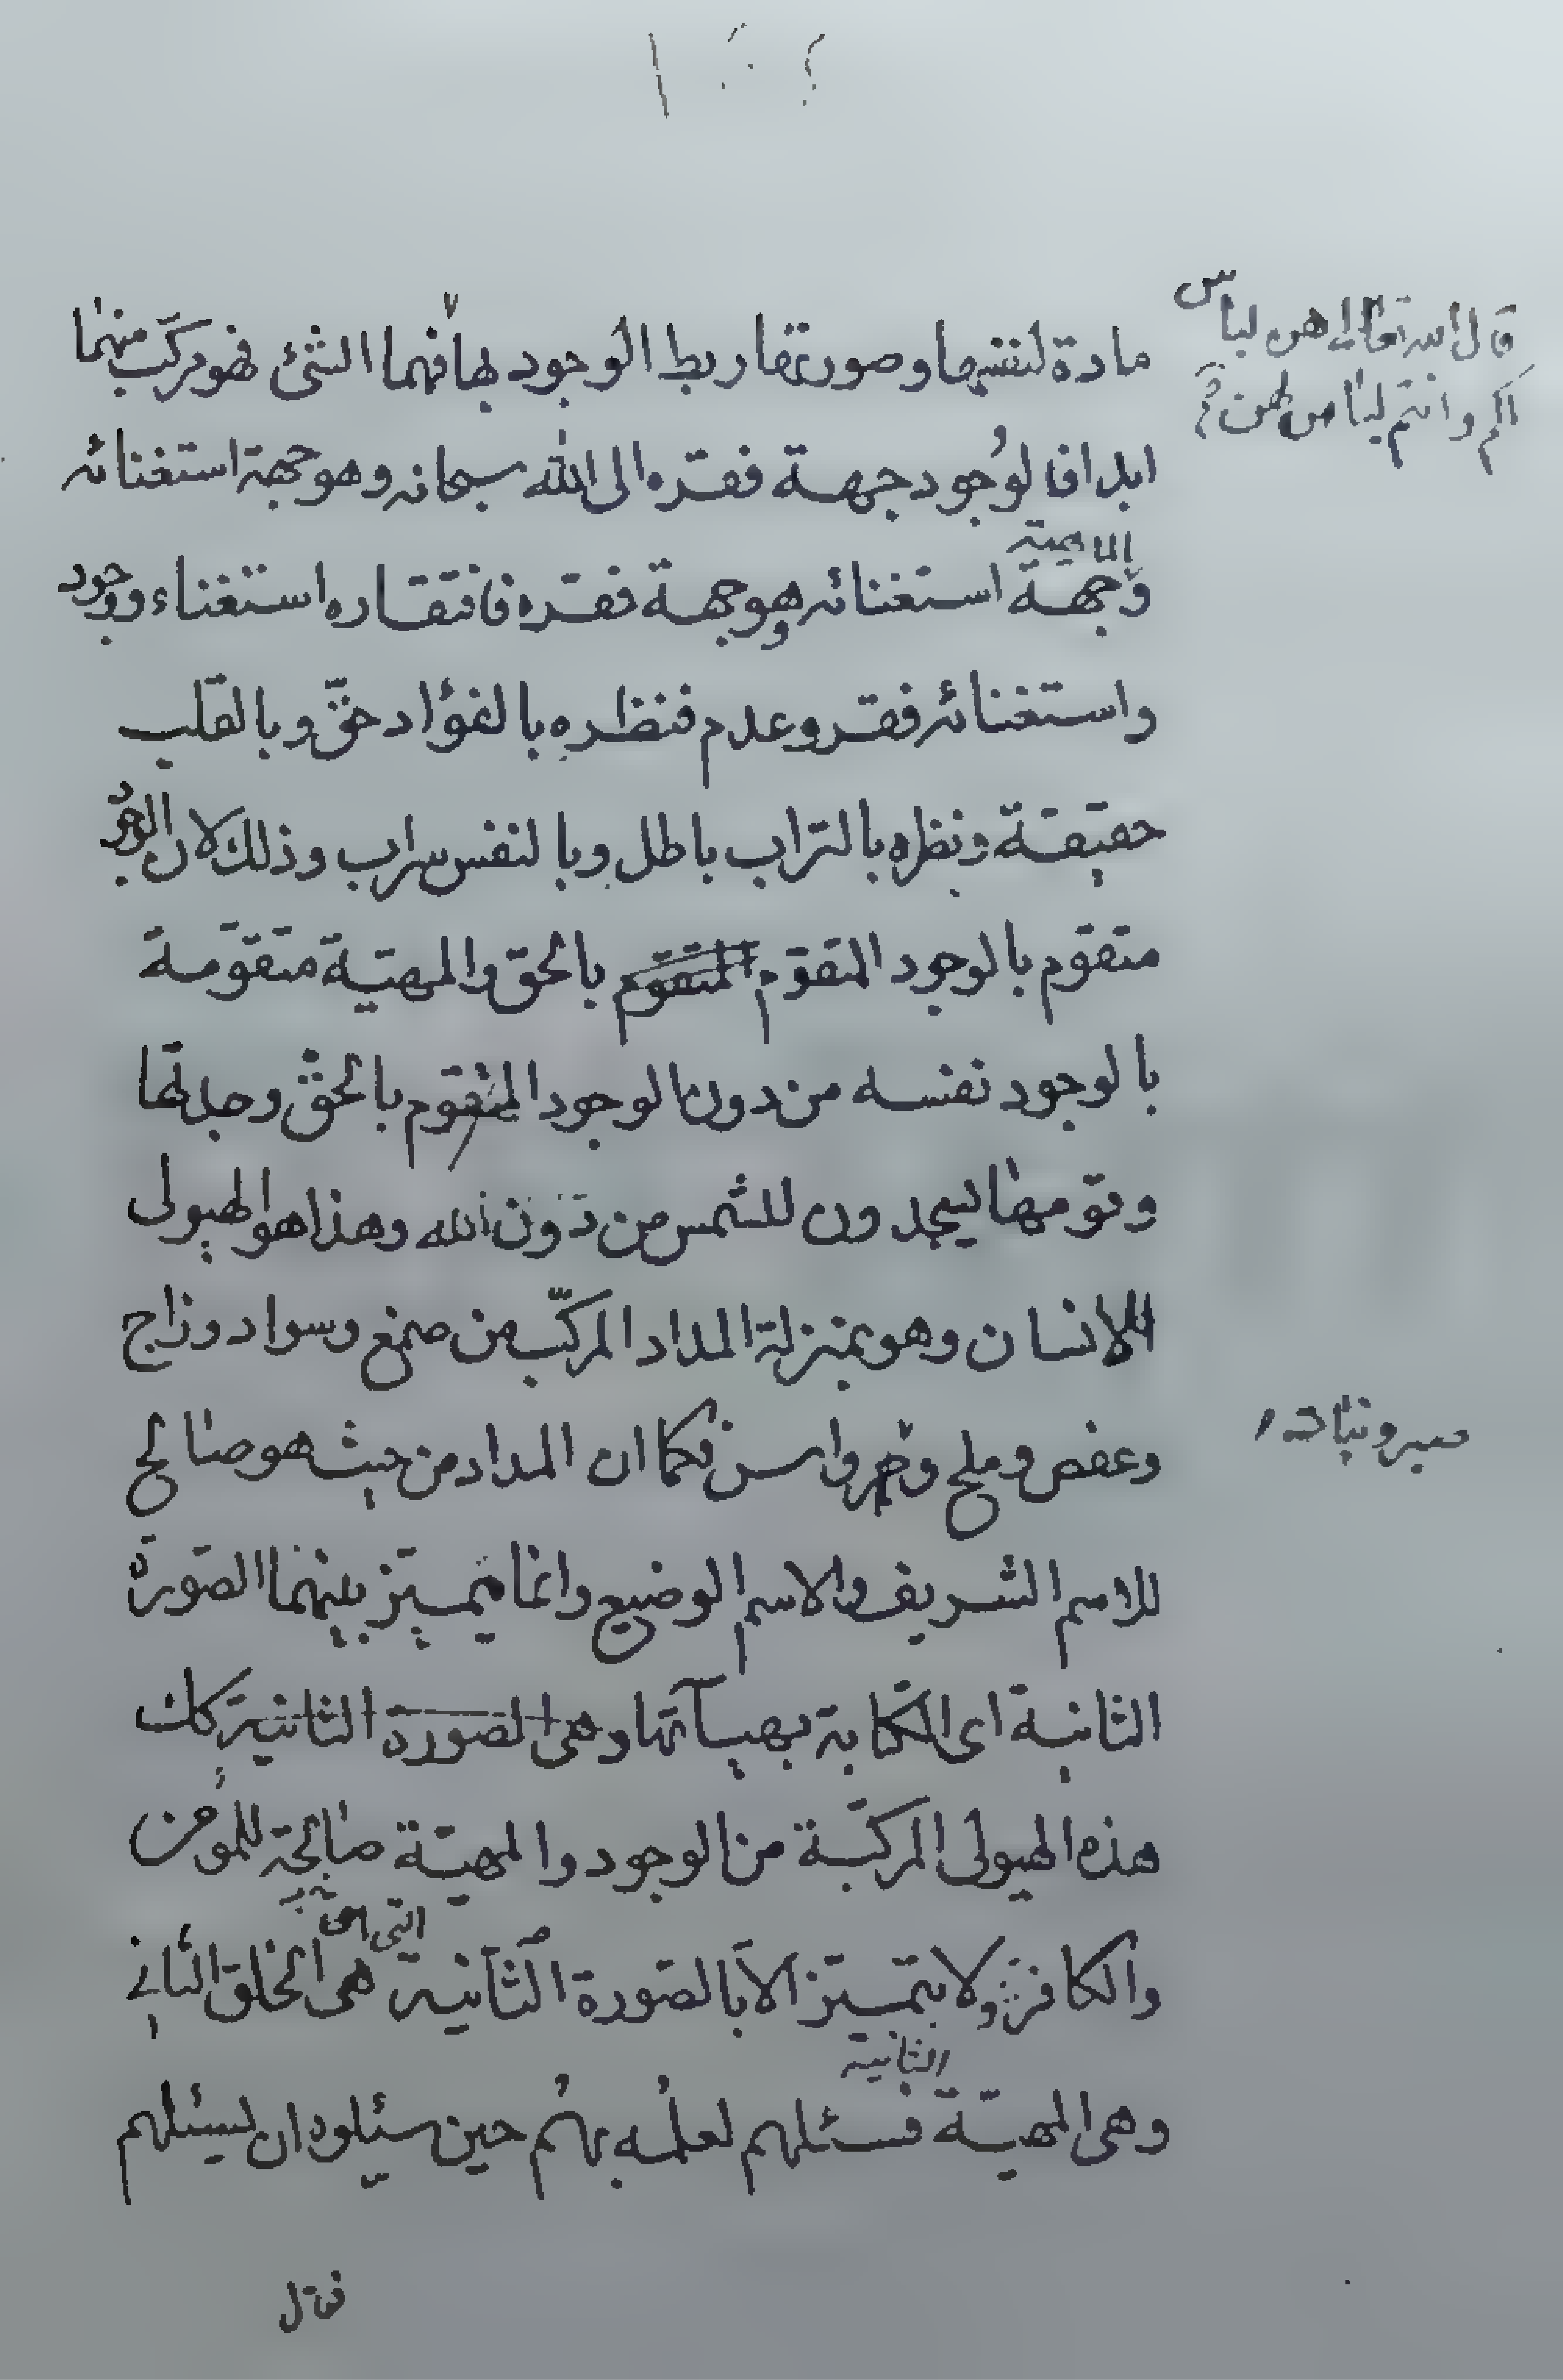 مادة لنفسها وصورتها ربط الوجود بها فهما الشئ فهو مركب منهما
قال الله تعالى هن لباس
لكم وانتم لباس لهن
ابدا فالوجود جهة فقره الى الله سبحانه وهو جهة استغنائه
والمهية
وجهة استغنائه وهو جهة فقره فافتقاره استغناء ووجود
واستغنائه فقر وعدم فنظره بالفؤاد حق وبالقلب
حقيقة ونظره بالتراب باطل وبالنفس سراب وذلك لان الوجود
متقوم بالوجود المتقوم المتقوم بالحق والمهية متقومة
بالوجود نفسه من دون الوجود المتقوم بالحق وجدتها
وقومها يسجدون للشمس من دون الله وهذا هو الهيولى
للانسان وهو بمنزلة المداد المركب من صمغ وسواد وزاج
وعفص وملح واس فكما ان المداد من حيث هو صالح
صبر ونبات
للاسم الشريف والاسم الوضيع وانما يميز بينهما الصورة
الثانية اى الكتابة بهيآتها وهى الصورة الثانية كك
هذه الهيولى المركبة من الوجود والمهية صالحة للمؤمن
والكافر ولا يتميز الا بالصورة الثانية التى هى الخلق الثانى
الثانية
وهى المهية فسئلهم لعلمه بهم حين سئلوه ان يسئلهم
فقال